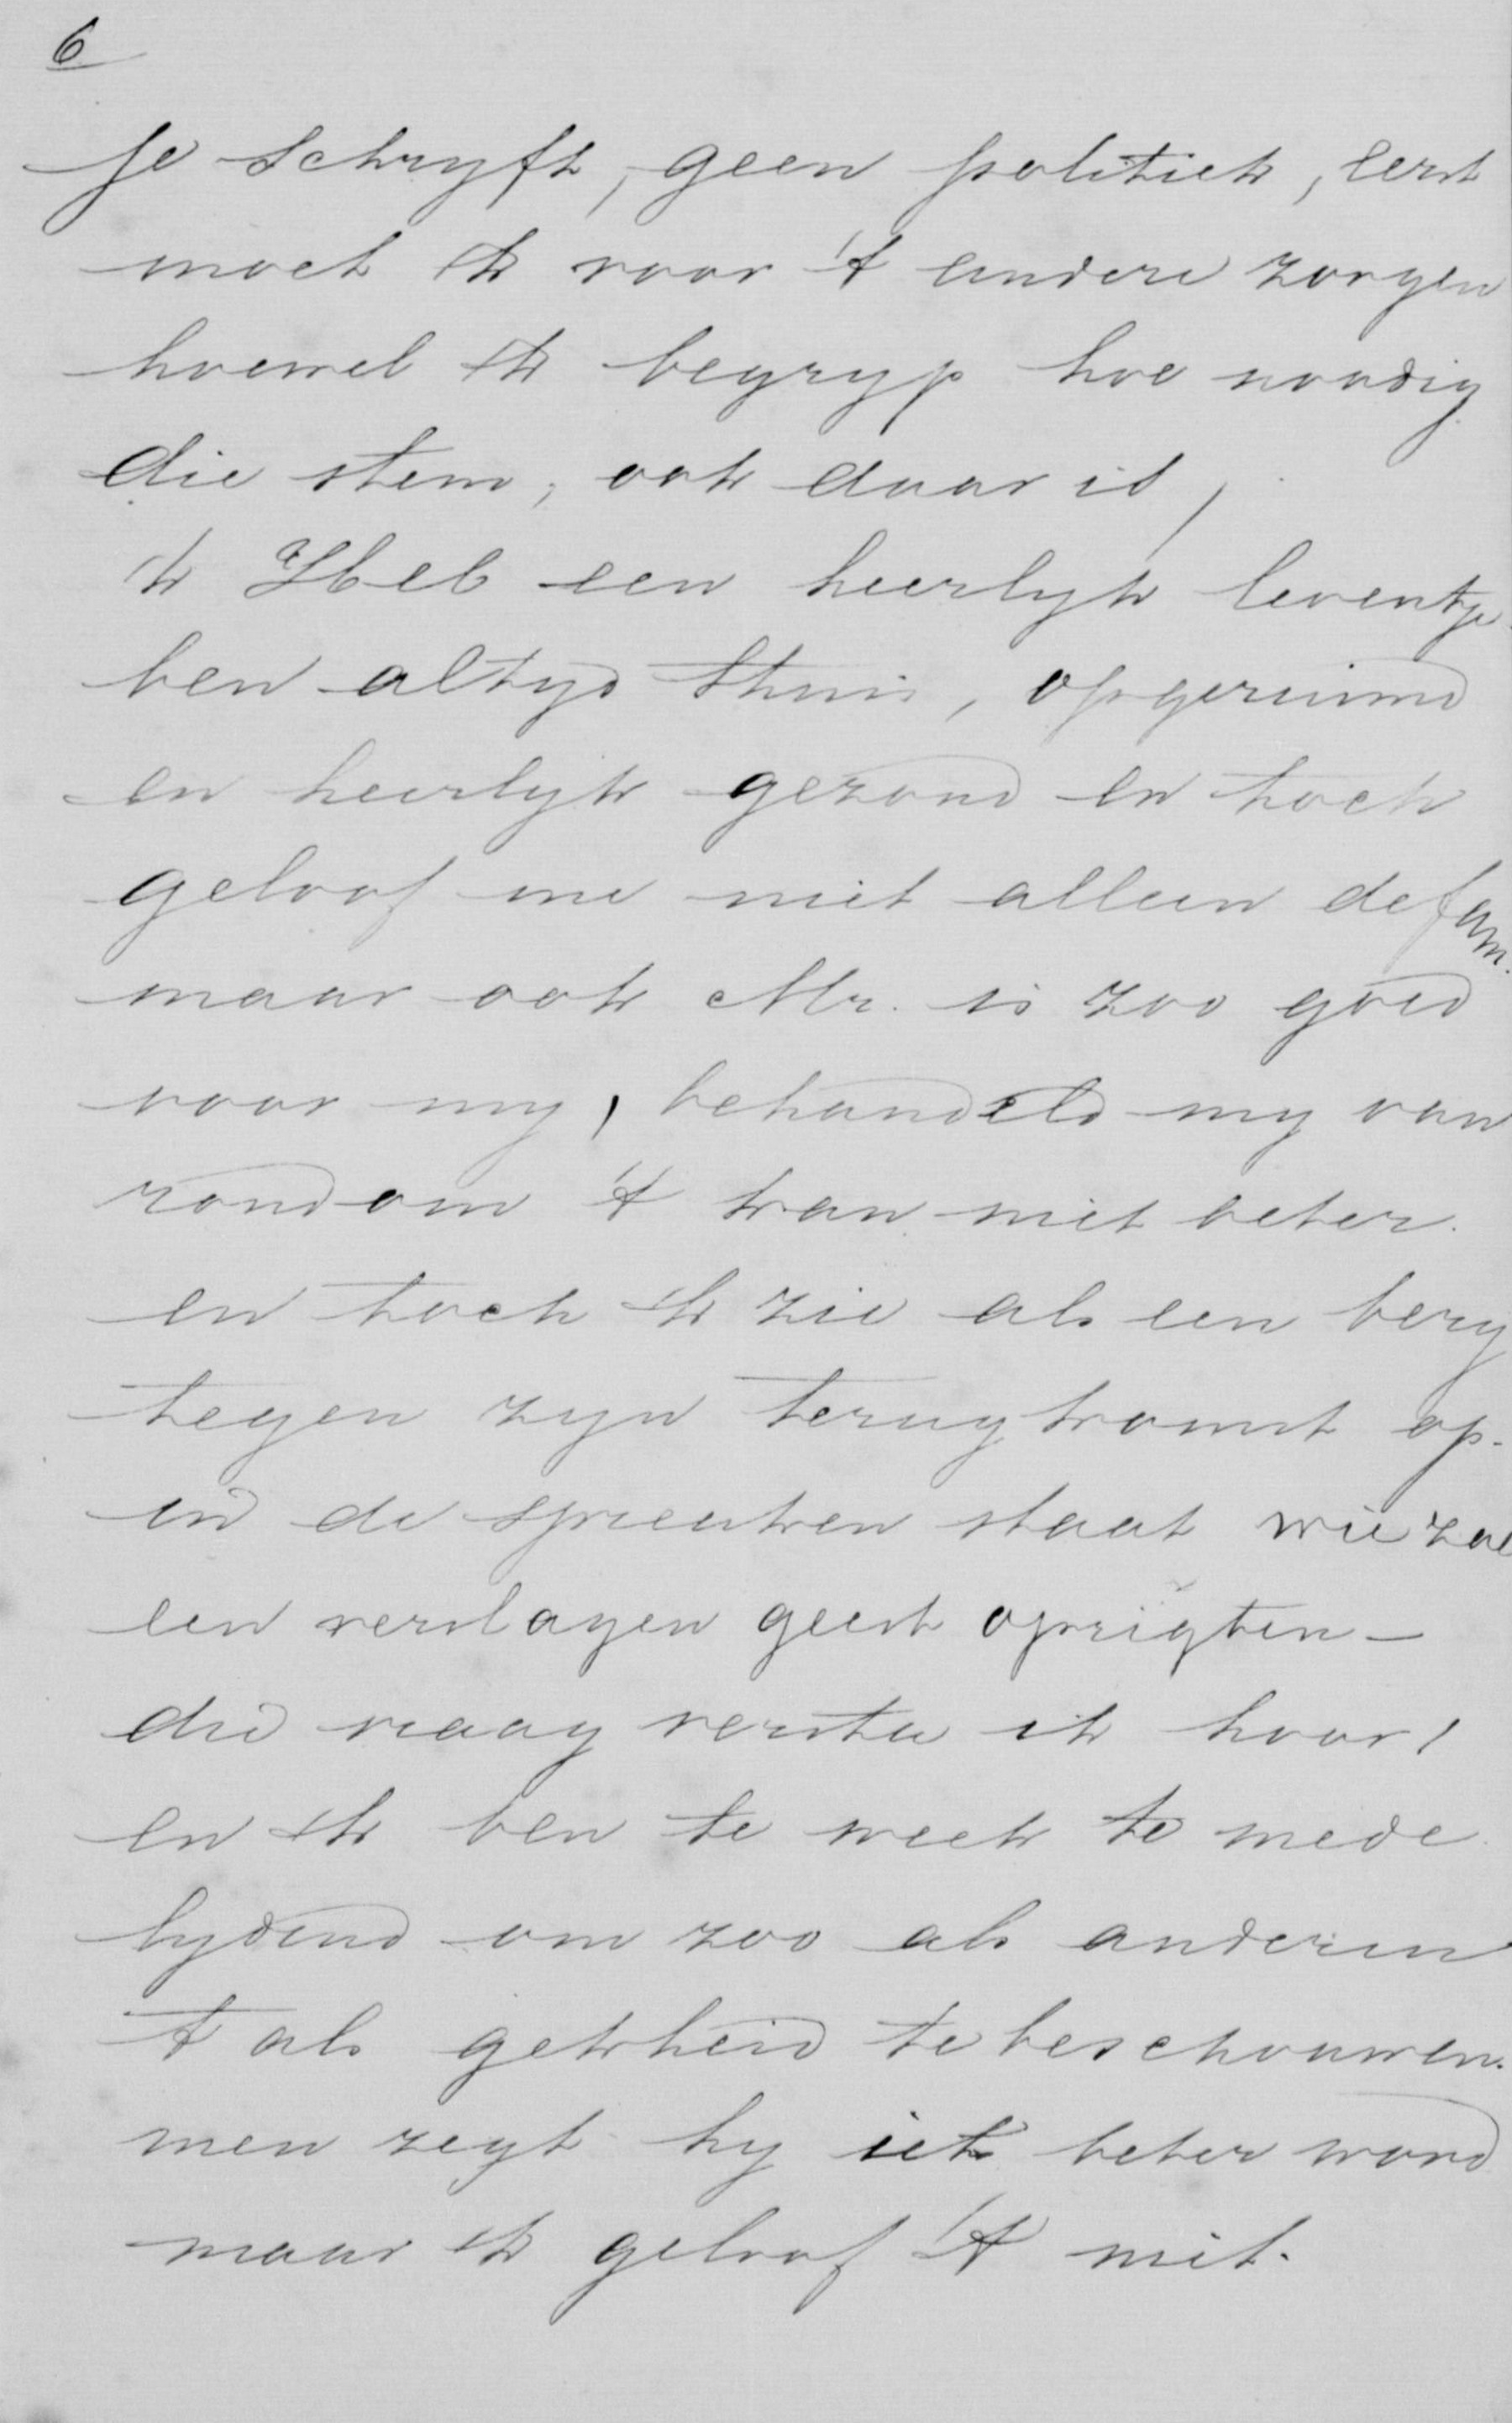 6
Je schryft, geen politiek, eerst
moet ik voor 't andere zorgen
hoewel ik begryp hoe noodig
die stem, ook daar is,
ik Heb een heerlyk leventje
ben altyd thuis, opgeruimd
en heerlyk gezond en toch
geloof me niet alleen de fam.
maar ook Mr. is zoo goed
voor my, behandeld my van
rondom 't kan niet beter.
en toch ik zie als een berg
tegen zyn terugkomst op.
in de spreuken staat wie zal
een verslagen geest oprigten -
die vraag verstа ik hoor,
en ik ben te week te mede
lydend om zoo als anderen
't als gekheid te beschouwen.
men zegt hy iets beter word
maar ik geloof 't niet.